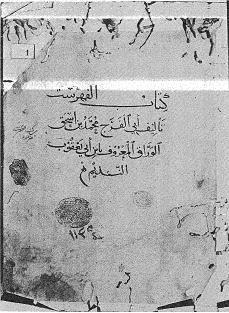 كتاب الفهرست
تأليف أبي الفرج محمد بن اسحق
الوراق المعروف بابن أبي يعقوب
النديم